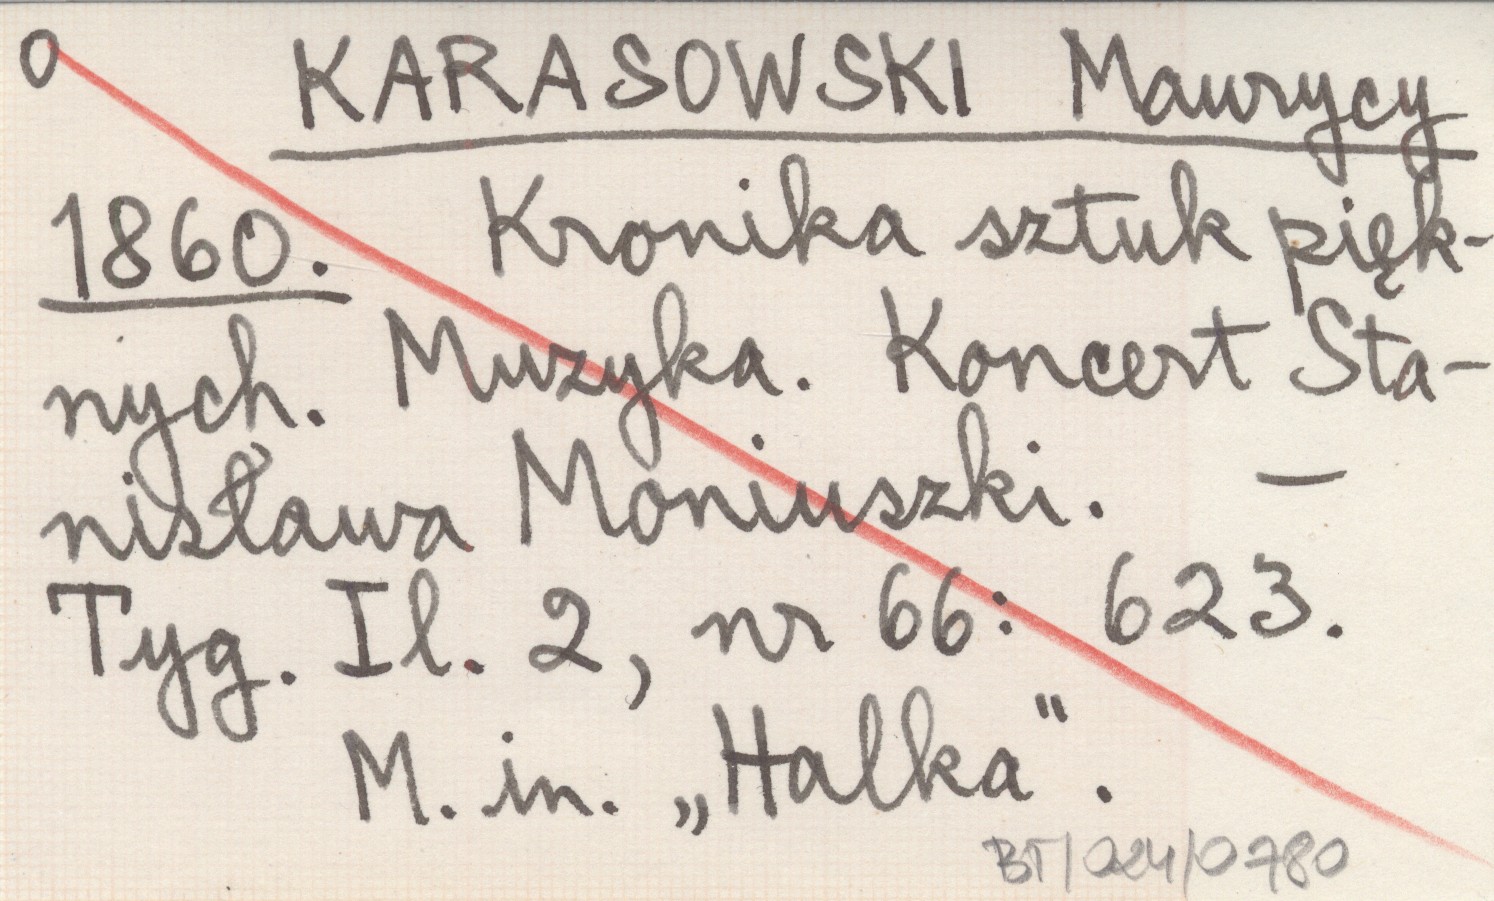 O KARASOWSKI Maurycy
1860. Kronika sztuk pięk-
nych. Muzyka. Koncert Sta-
nisława Moniuszki. —
Tyg. Il. 2, nr 66: 623.
M. in. „Halka".
BT/024/0780